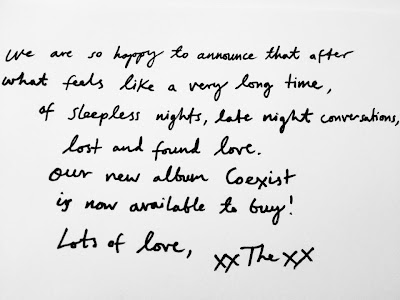 we are so happy to announce that after
what feels like a very long time,
of sleepless nights, late night conversations,
lost and found love.
our new album Coexist
is now available to buy!
Lots of love, xx The xx